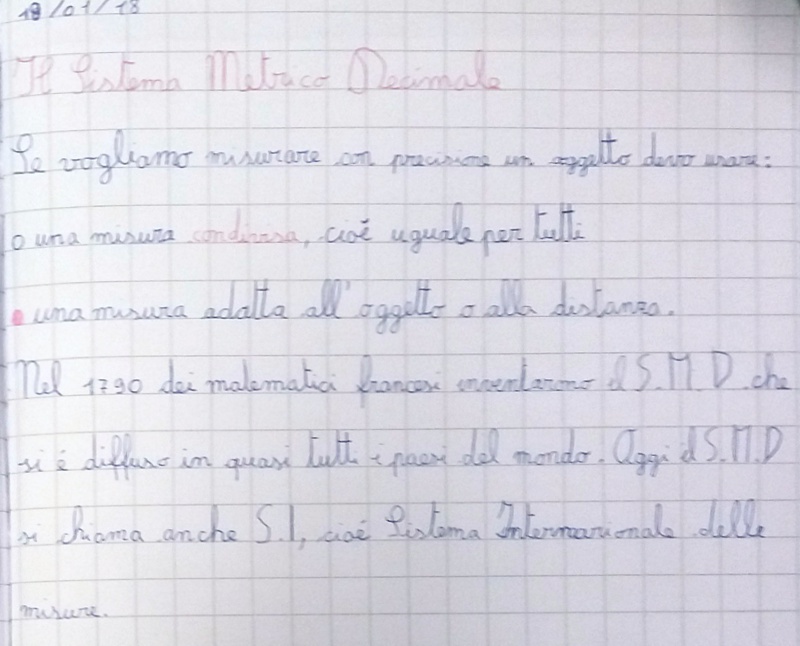 18/01/18
Il Sistema Metrico Decimale
Se vogliamo misurare con precisione un oggetto devo usare:
o una misura condivisa, cioè uguale per tutti
• una misura adatta all'oggetto o alla distanza.
Nel 1790 dei matematici francesi inventarono il S.M.D. che
si è diffuso in quasi tutti i paesi del mondo. Oggi il S.M.D
si chiama anche S.I, cioè Sistema Internazionale delle
misure.